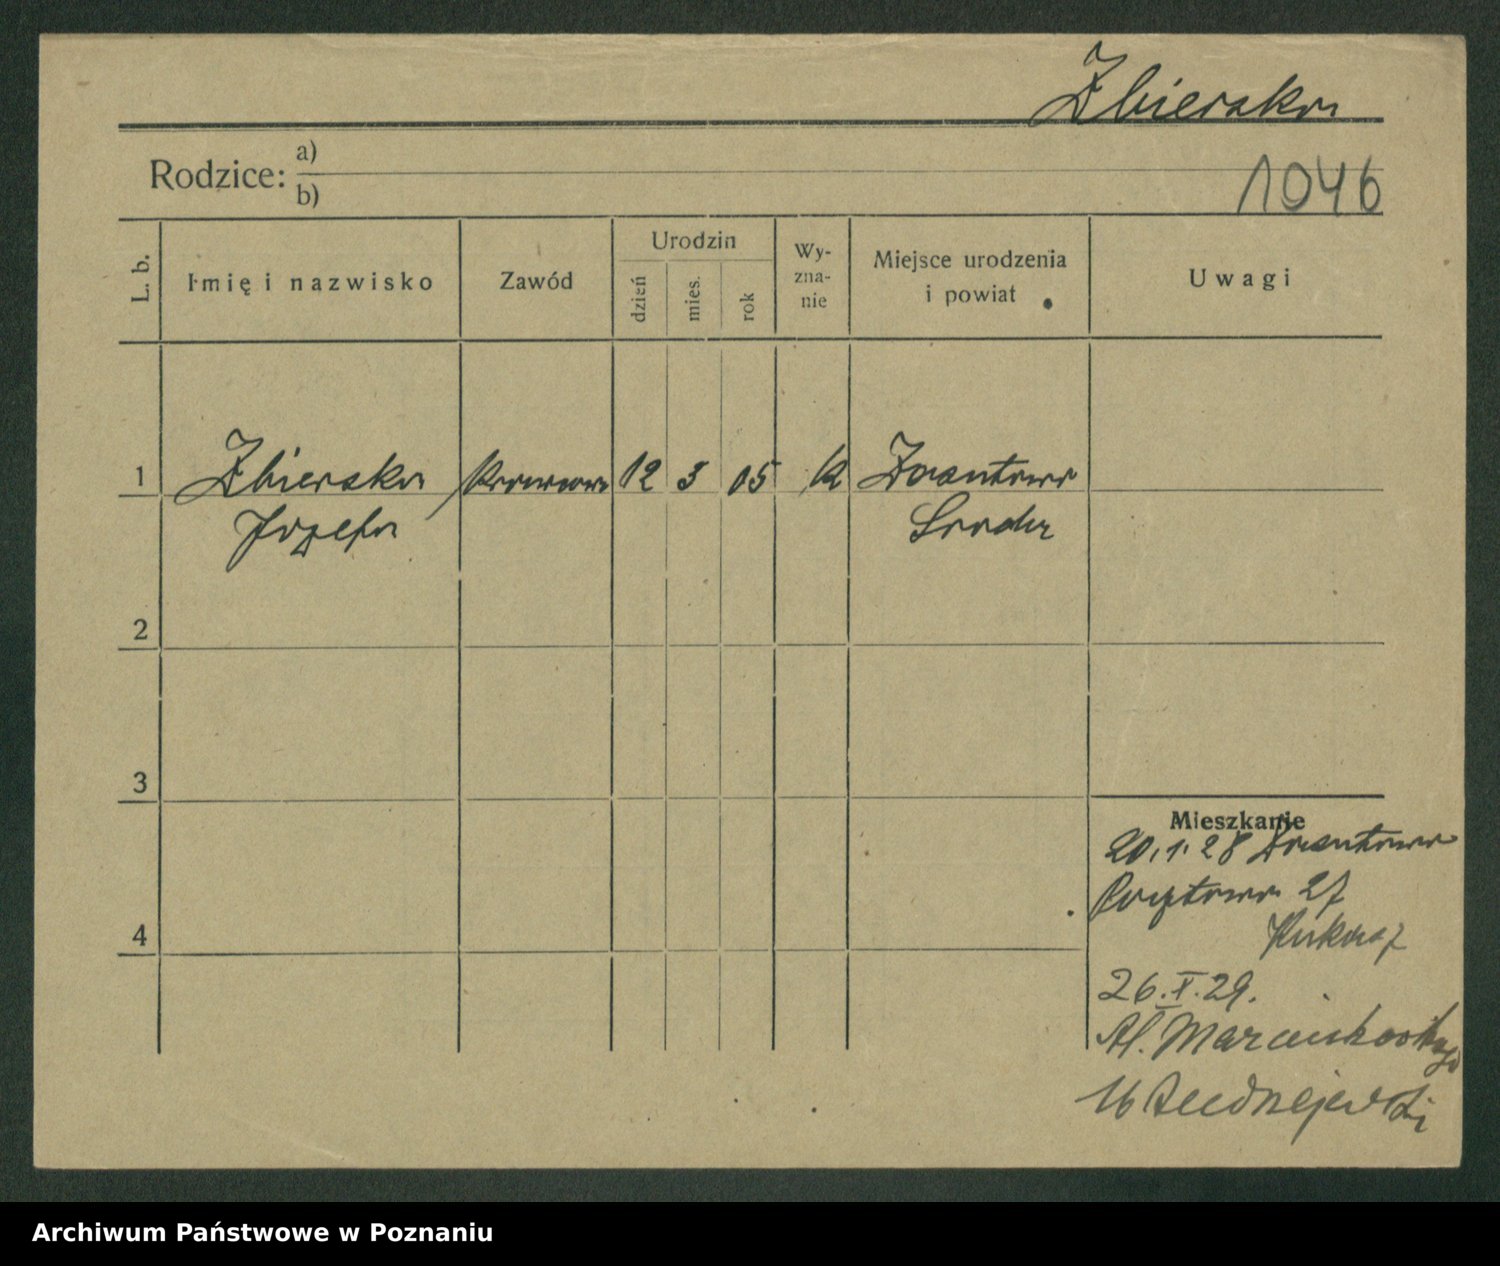 Zbierska
Rodzice: a)
b)
1046
L. b.
Imię i nazwisko
Zawód
Urodzin
dzień
mies.
rok
Wy-
zna-
nie
Miejsce urodzenia
i powiat
Uwagi
1 Zbierska Krawcowa 12 3 05 k
Józefa Środa
2
3
4
Mieszkanie
20.1.28
Pocztowa 27
26.X.29.
Al. Marcinkowskiego
16
Archiwum Państwowe w Poznaniu